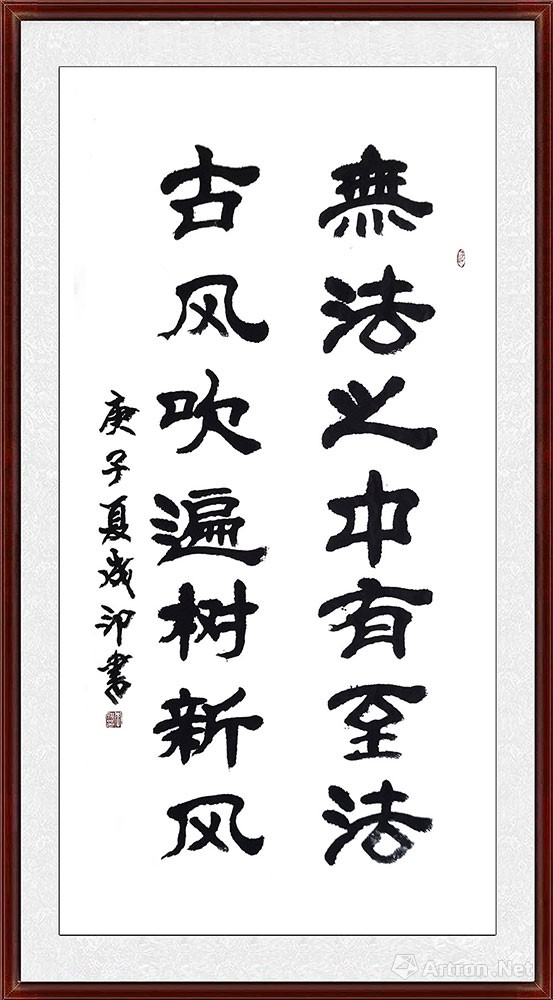 無法之中有至法
古风吹遍树新风
庚子夏成印書
Artron.Net